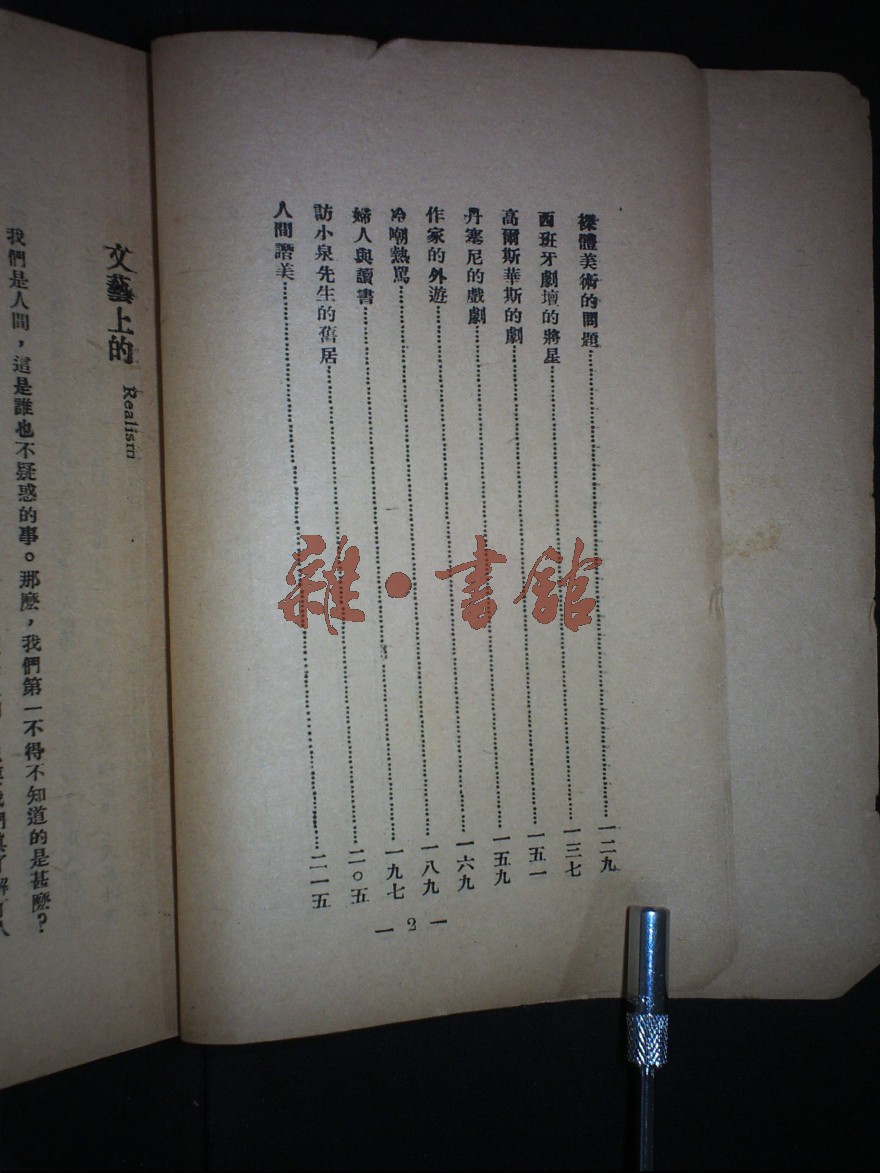 裸體美術的問題……一二九
西班牙劇壇的將星……一三七
高爾斯華斯的劇……一五一
丹塞尼的戲劇……一五九
作家的外遊……一六九
冷嘲熱罵……一八九
婦人與讀書……一九七
訪小泉先生的舊居……二〇五
人間讚美……二一五
— 2 —
文藝上的 Realism
我們是人間，這是誰也不疑惑的事。那麼，我們第一不得不知道的是甚麼？
雜·書館